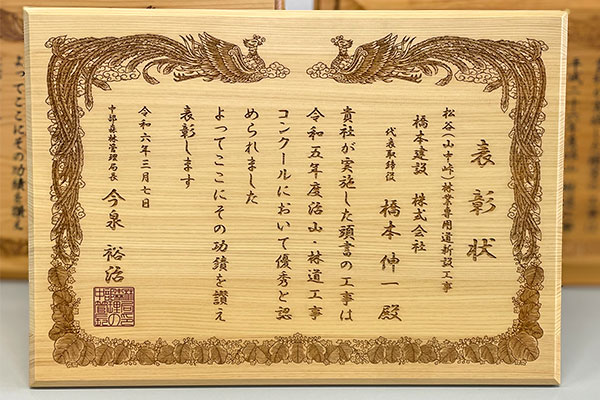 表彰状
松谷(山中峠)林業専用道新設工事
橋本建設 株式会社
代表取締役 橋本伸一殿
貴社が実施した頭書の工事は
令和五年度治山・林道工事
コンクールにおいて優秀と認
められました
よってここにその功績を讃え
表彰します
令和六年三月七日
中部森林管理局長 今泉裕治
よってここにその功績を讃え